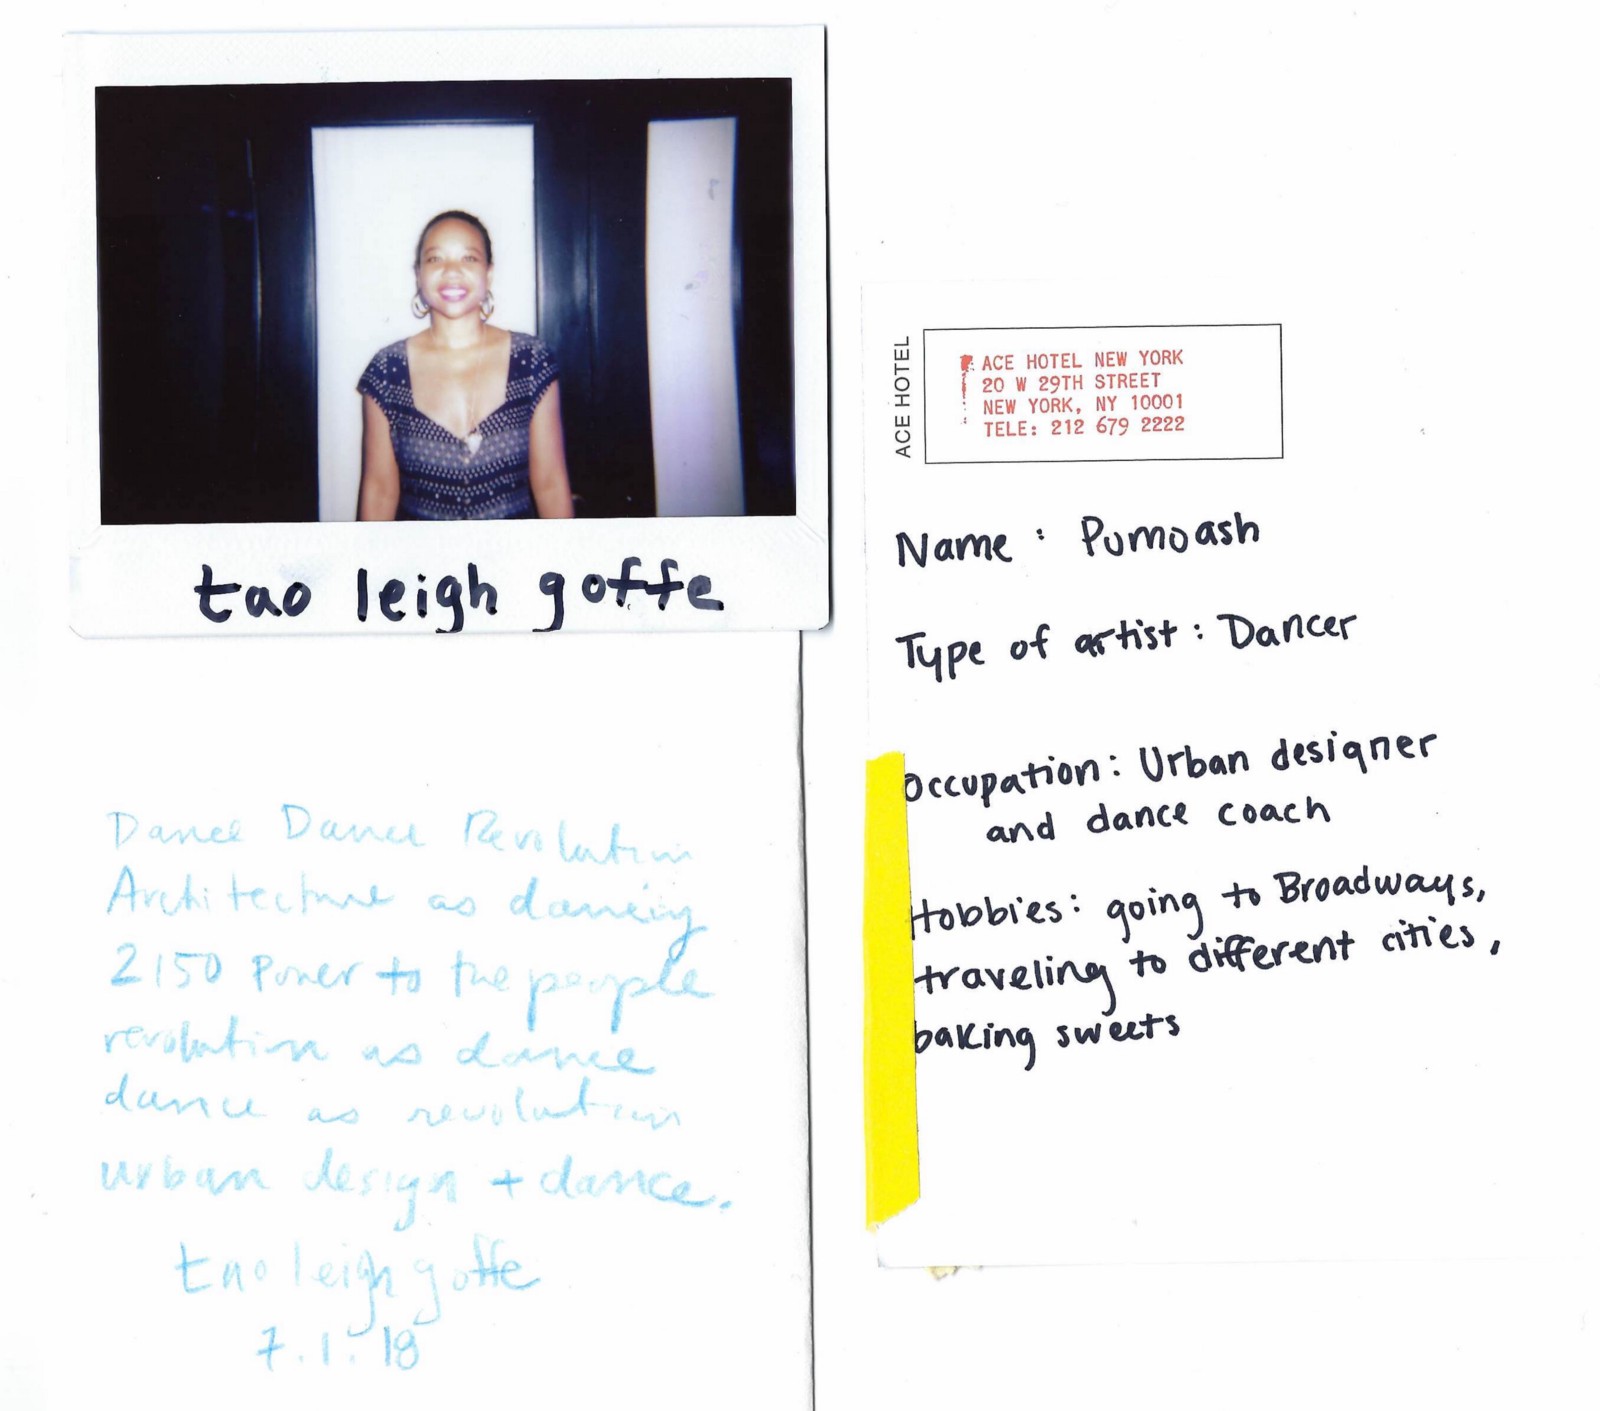 tao leigh goffe
Dance Dance Revolution
Architecture as dancing
2150 Power to the people
revolution as dance
dance as revolution
urban design + dance.
tao leigh goffe
7.1.18
ACE HOTEL
ACE HOTEL NEW YORK
20 W 29TH STREET
NEW YORK, NY 10001
TELE: 212 679 2222
Name: Pumoash
Type of artist: Dancer
Occupation: Urban designer
and dance coach
Hobbies: going to Broadways,
traveling to different cities,
baking sweets